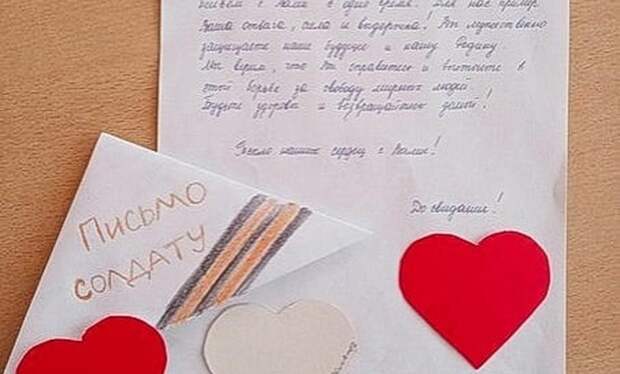 живем с Вами в одно время. Для нас пример
Ваша отвага, сила и выдержка! Вы мужественно
защищаете наше будущее и нашу Родину.
Мы верим, что Вы справитесь и выстоите в
этой борьбе за свободу мирных людей.
Будьте здоровы и возвращайтесь домой!
Тепло наших сердец с Вами!
До свидания!
Письмо
солдату